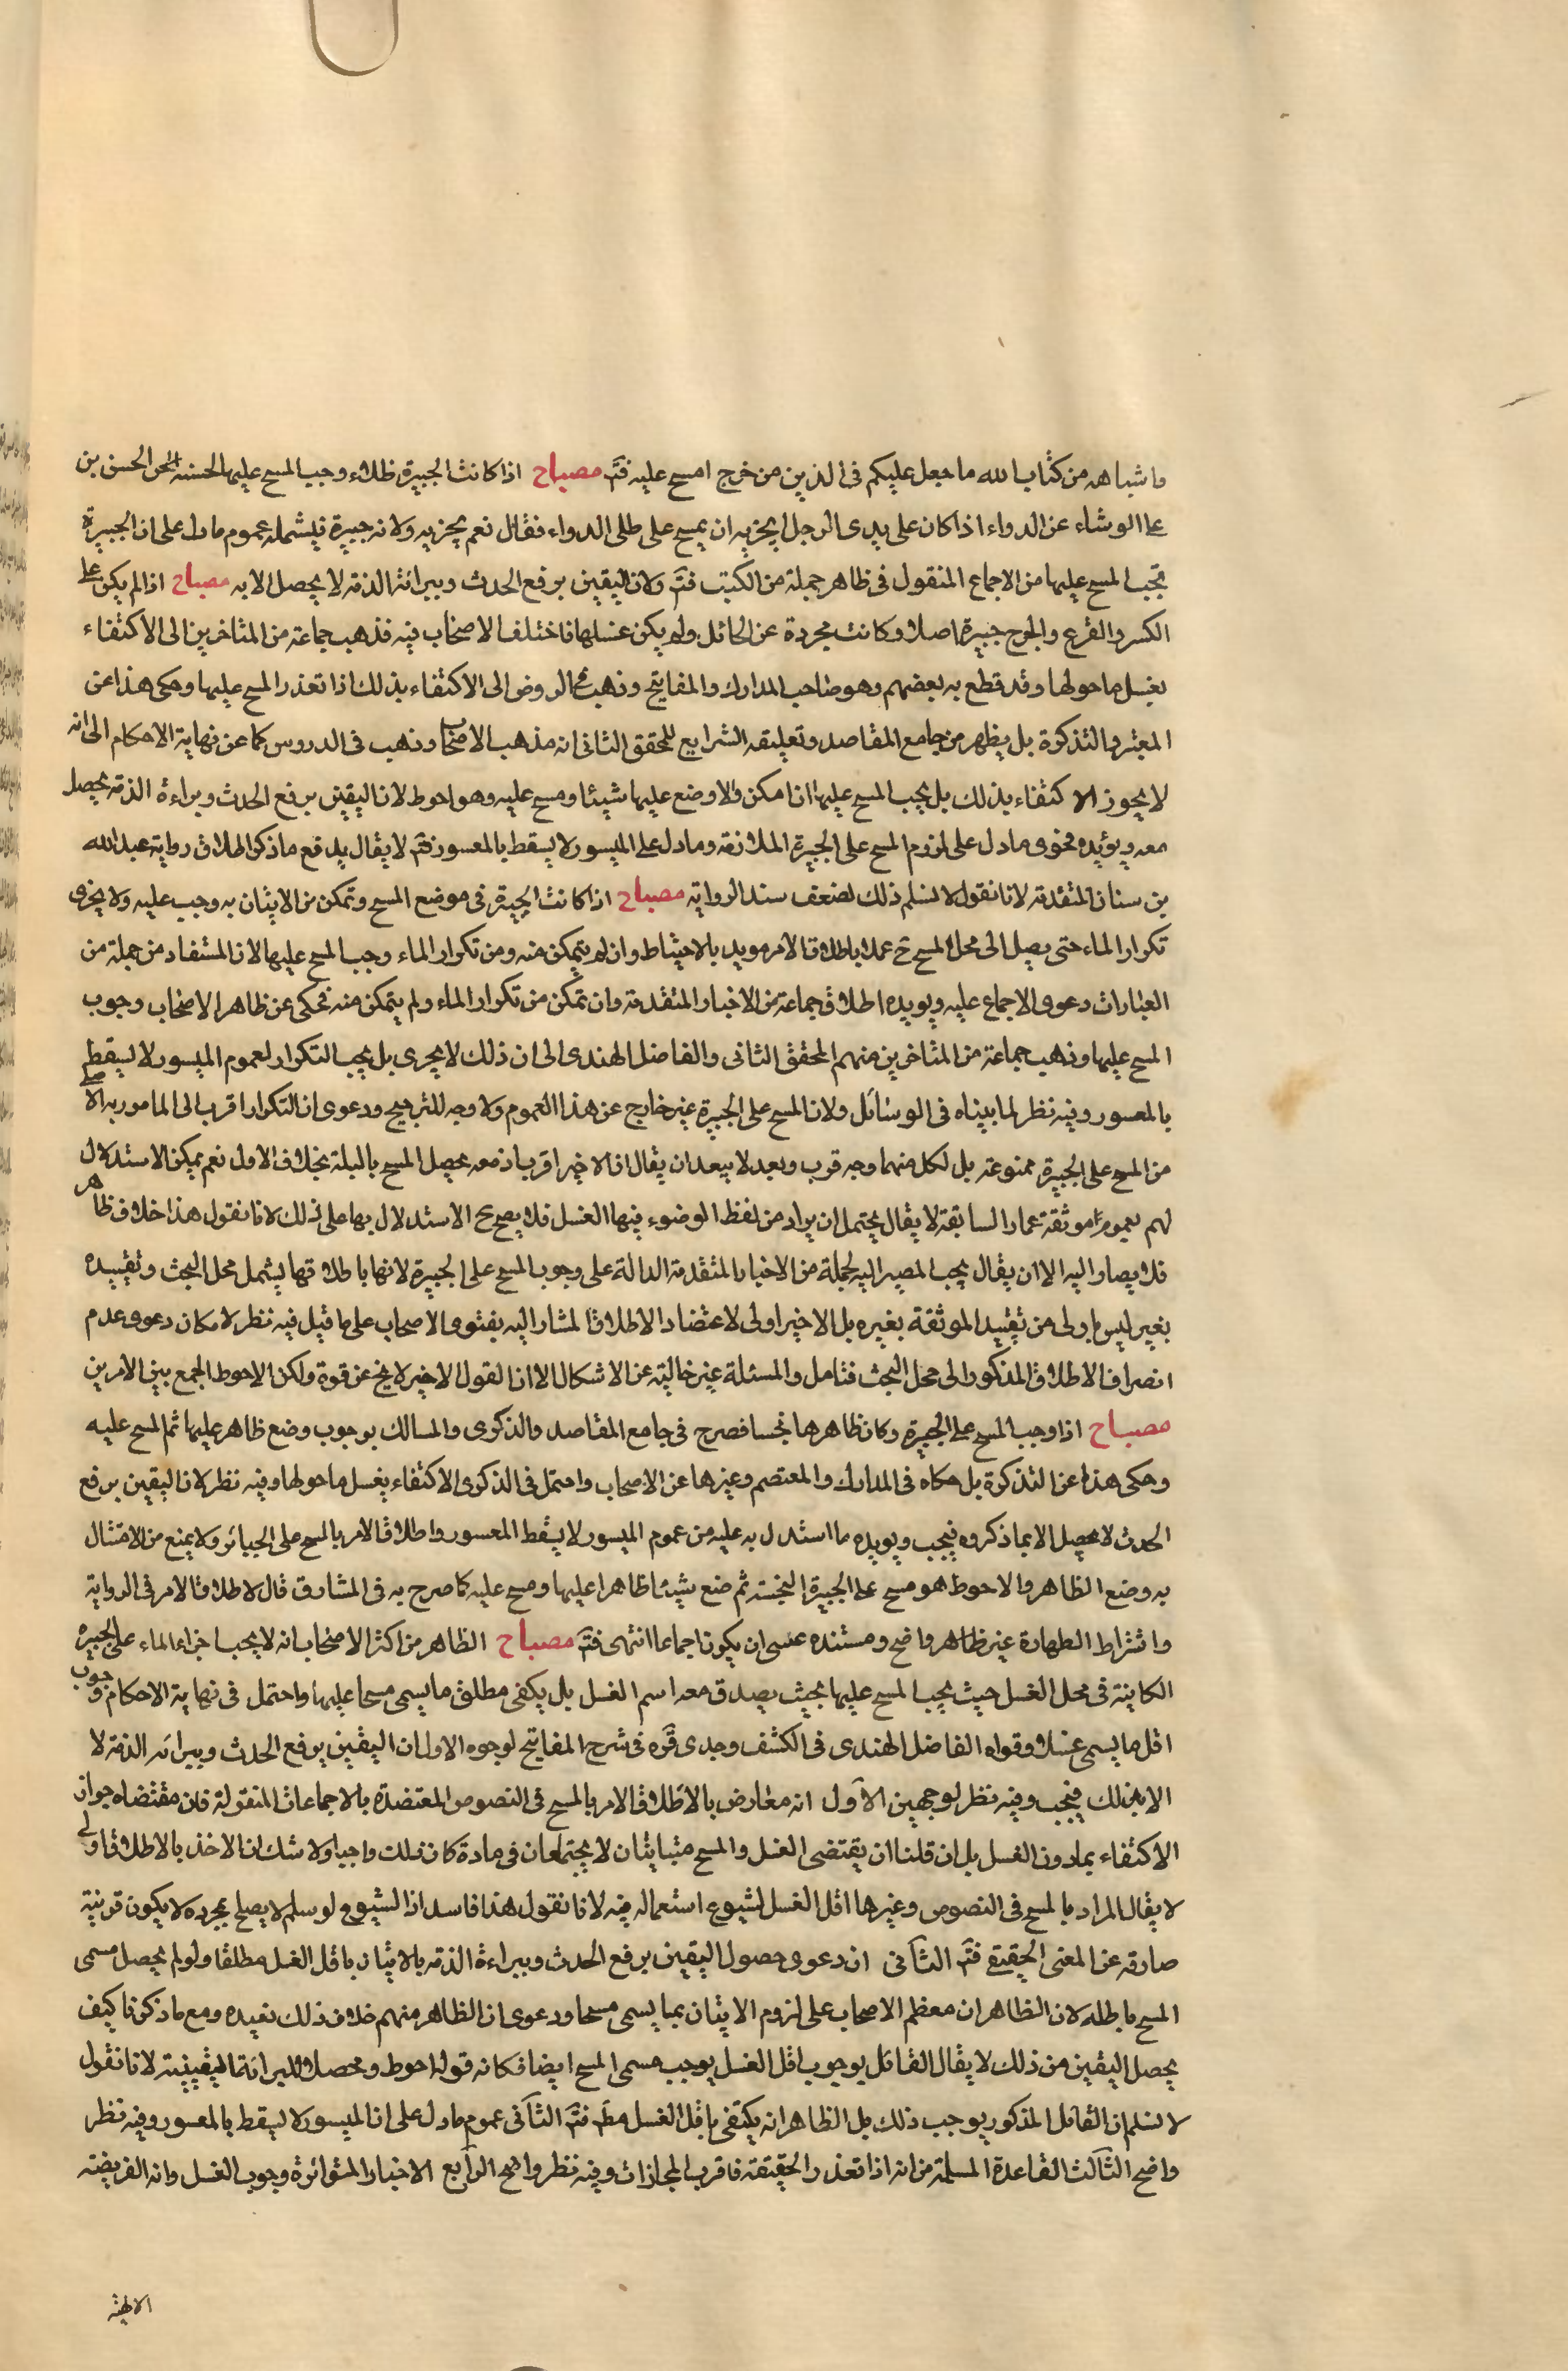 واشباهه من كتاب الله ما جعل عليكم فى الدين من حرج امسح عليه فتم مصباح اذا كانت الجبيرة طلاء وجب المسح عليها لحسنة الحسن بن
على الوشاء عن الدواء اذا كان على يدى الرجل ايجزيه ان يمسح على طلى الدواء فقال نعم يجزيه ولانه جبيرة فيشمله عموم ما دل على ان الجبيرة
يجب المسح عليها من الاجماع المنقول فى ظاهر جملة من الكتب فتم ولان اليقين برفع الحدث وببرائة الذمة لا يحصل الا به مصباح اذا لم يكن على
الكسر والقرح والجرح جبيرة اصلا وكانت مجردة عن الحائل ولم يكن غسلها فاختلف الاصحاب فيه فذهب جماعة من المتاخرين الى الاكتفاء
بغسل ما حولها وقد قطع به بعضهم وهو صاحب المدارك والمفاتيح وذهب فى الروض الى الاكتفاء بذلك اذا تعذر المسح عليها وحكى هذا عن
المعتبر والتذكرة بل يظهر من جامع المقاصد وتعليقه الشرايع للمحقق الثانى انه مذهب الاصحاب وذهب فى الدروس كما عن نهاية الاحكام الى انه
لا يجوز الاكتفاء بذلك بل يجب المسح عليها ان امكن والا وضع عليها شيئا ومسح عليه وهو احوط لان اليقين برفع الحدث وبراءة الذمة يحصل
معه ويؤيده فحوى ما دل على لزوم المسح على الجبيرة الملازقة وما دل على الميسور لا يسقط بالمعسور فتم لا يقال يدفع ما ذكر اطلاق رواية عبد الله
بن سنان المتقدمة لانا نقول لا نسلم ذلك لضعف سند الرواية مصباح اذا كانت الجبيرة فى موضع المسح وتمكن من الاتيان به وجب عليه ولا يجزى
تكرار الماء حتى يصل الى محل المسح ح عملا باطلاق الامر مويد بالاحتياط وان لم يتمكن منه ومن تكرار الماء وجب المسح عليها لان المستفاد من جملة من
العبارات دعوى الاجماع عليه ويويده اطلاق جماعة من الاخبار المتقدمة وان تمكن من تكرار الماء ولم يتمكن منه فحكى عن ظاهر الاصحاب وجوب
المسح عليها وذهب جماعة من المتاخرين منهم المحقق الثانى والفاضل الهندى الى ان ذلك لا يجرى بل يجب التكرار لعموم الميسور لا يسقط
بالمعسور وفيه نظر لما بيناه فى الوسائل ولان المسح على الجبيرة غير خارج عن هذا العموم ولا وجه للترجيح ودعوى ان التكرار اقرب الى المامور به الاصلى
من المسح على الجبيرة ممنوعة بل لكل منهما وجه قرب وبعد لا يبعد ان يقال ان الاخير اقرب اذ معه يحصل المسح بالبلة بخلاف الاول نعم يمكن الاستدلال
لهم بعموم موثقة عمار السابقة لا يقال يحتمل ان يراد من لفظ الوضوء فيها الغسل فلا يصح ح الاستدلال بها على ذلك لانا نقول هذا خلاف ظاهر
فلا يصار اليه الا ان يقال يجب المصير اليه لجملة من الاخبار المتقدمة الدالة على وجوب المسح على الجبيرة لانها باطلاقها يشمل محل البحث وتقييده
بغير ليس باولى من تقييد الموثقة بغيره بل الاخير اولى لاعتضاد الاطلاق المشار اليه بفتوى الاصحاب على ما قيل فيه نظر لامكان دعوى عدم
انصراف الاطلاق المذكور الى محل البحث فتامل والمسئلة غير خالية عن الاشكال الا ان القول الاخير لا يخ عن قوة ولكن الاحوط الجمع بين الامرين
مصباح اذا وجب المسح على الجبيرة وكان ظاهرها نجسا فصرح فى جامع المقاصد والذكرى والمسالك بوجوب وضع طاهر عليها ثم المسح عليه
وحكى هذا عن التذكرة بل حكاه فى المدارك والمعتصم وغيرها عن الاصحاب واحتمل فى الذكرى الاكتفاء بغسل ما حولها وفيه نظر لان اليقين برفع
الحدث لا يحصل الا بما ذكروه فيجب ويويده ما استدل به عليه من عموم الميسور لا يسقط المعسور واطلاق الامر بالمسح على الجبائر ولا يمنع من الامتثال
به وضع الظاهر والاحوط هو مسح على الجبيرة النجسة ثم ضع شيئا طاهرا عليها ومسح عليه كما صرح به فى المشارق قال لاطلاق الامر فى الرواية
واشتراط الطهارة غير ظاهر واضح ومستنده عسى ان يكون اجماعا انتهى فتم مصباح الظاهر من اكثر الاصحاب انه لا يجب اجراء الماء على الجبيرة
الكاينة فى محل الغسل حيث يجب المسح عليها بحيث يصدق معه اسم الغسل بل يكفى مطلق ما يسمى مسحا عليها واحتمل فى نهاية الاحكام وجوب
اقل ما يسمى غسلا وقواه الفاضل الهندى فى الكشف وجدى قده فى شرح المفاتيح لوجوه الاول ان اليقين برفع الحدث وببرائه الذمة لا
الا بذلك فيجب وفيه نظر لوجهين الاول انه معارض بالاطلاق الامر بالمسح فى النصوص المعتضدة بالاجماعات المنقولة فان مقتضاه جواز
الاكتفاء بما دون الغسل بل ان قلنا ان يقتضى الغسل والمسح متباينان لا يجتمعان فى مادة كان ذلك واجبا ولا شك ان الاخذ بالاطلاق اولى
لا يقال المراد بالمسح فى النصوص وغيرها اقل الغسل لشيوع استعماله فيه لانا نقول هذا فاسد اذ الشيوع لو سلم لا يصلح بمجرده لا يكون قرينة
صارفه عن المعنى الحقيقى فتم الثانى ان دعوى حصول اليقين برفع الحدث وببراءة الذمة بالاتيان باقل الغسل مطلقا ولو لم يحصل مسمى
المسح باطله لان الظاهر ان معظم الاصحاب على لزوم الاتيان بما يسمى مسحا ودعوى ان الظاهر منهم خلاف ذلك بعيده ومع ما ذكرنا كيف
يحصل اليقين من ذلك لا يقال القائل بوجوب اقل الغسل يوجب مسمى المسح ايضا فكانه قوله احوط ومحصلا للبرائة اليقينية لانا نقول
لا نسلم ان القائل المذكور يوجب ذلك بل الظاهر انه يكتفى باقل الغسل مط فتم الثانى عموم ما دل على ان الميسور لا يسقط بالمعسور وفيه نظر
واضح الثالث القاعدة المسلمة من انه اذا تعذر الحقيقة فاقرب المجازات وفيه نظر واضح الرابع الاخبار المتواترة وجوب الغسل وانه الفريضة
الالهية